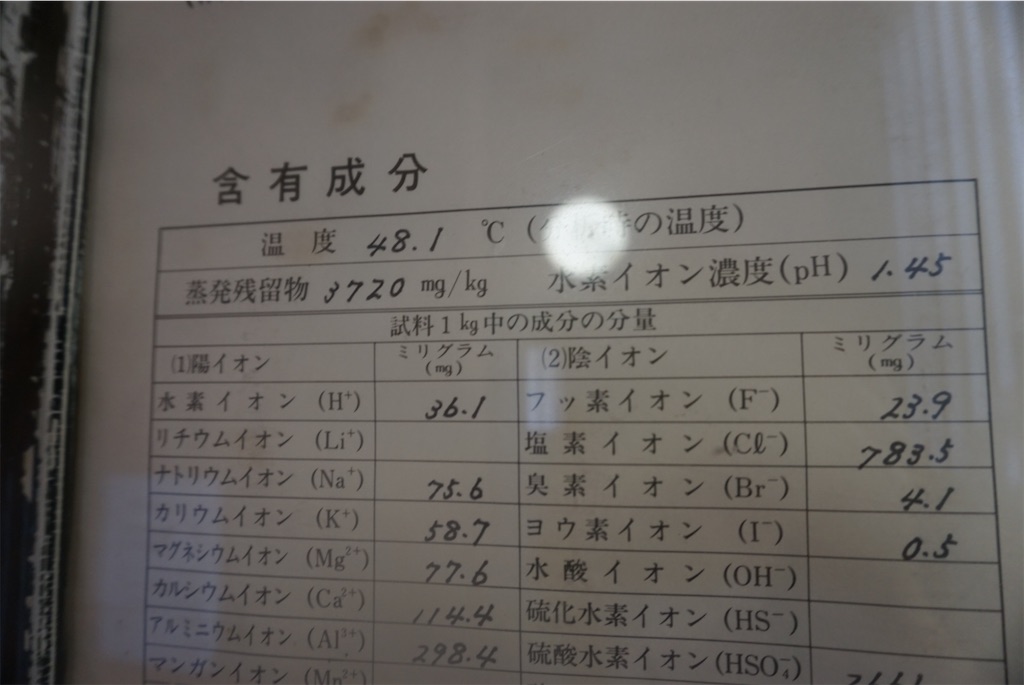 含有成分
温度 48.1 ℃ ( の温度)
蒸発残留物 3720 mg/kg 水素イオン濃度(pH) 1.45
試料1kg中の成分の分量
(1)陽イオン ミリグラム (mg) (2)陰イオン ミリグラム (mg)
水素イオン (H⁺) 36.1 フッ素イオン (F⁻) 23.9
リチウムイオン (Li⁺) 塩素イオン (Cℓ⁻) 783.5
ナトリウムイオン (Na⁺) 75.6 臭素イオン (Br⁻) 4.1
カリウムイオン (K⁺) 58.7 ヨウ素イオン (I⁻) 0.5
マグネシウムイオン (Mg²⁺) 77.6 水酸イオン (OH⁻)
カルシウムイオン (Ca²⁺) 114.4 硫化水素イオン (HS⁻)
アルミニウムイオン (Al³⁺) 298.4 硫酸水素イオン (HSO₄⁻)
マンガンイオン (Mn²⁺)